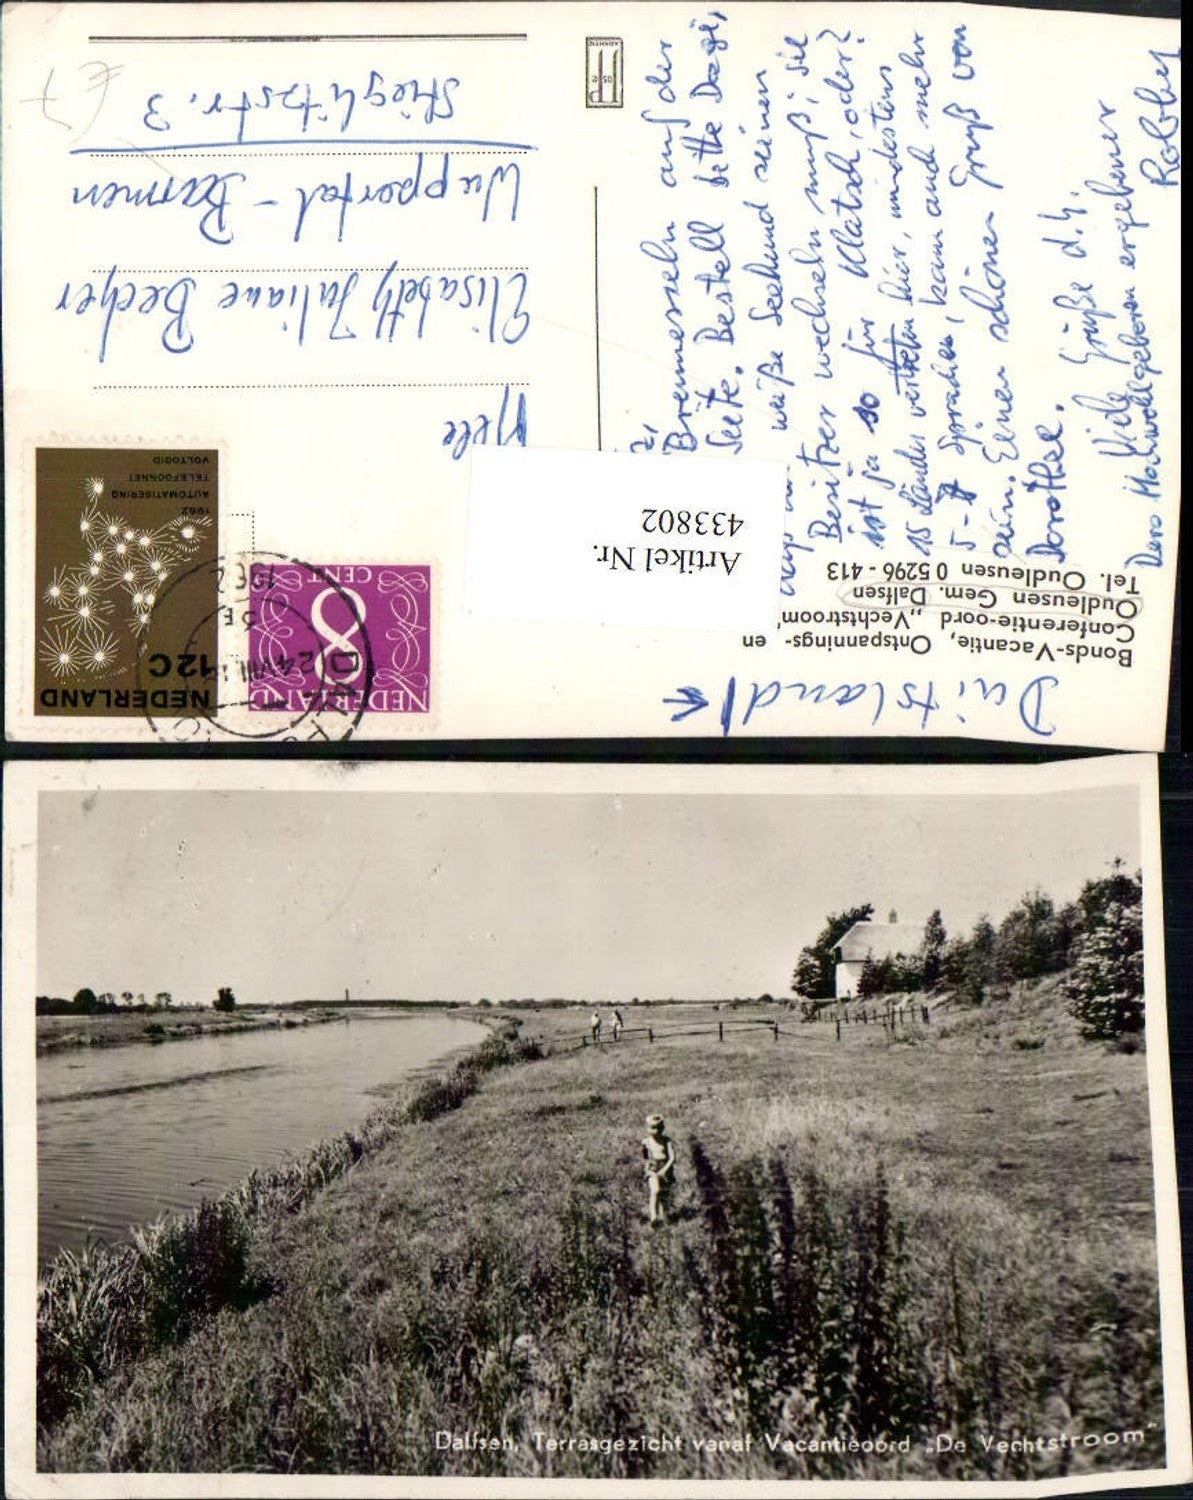 Bonds-Vacantie, Ontspannings- en
Conferentie-oord „Vechtstroom"
Oudleusen Gem. Dalfsen
Tel. Oudleusen 0 5296 - 413
Brennesseln auf der
Seite. Bestell bitte Dagi,
weiße Seehund seinen
Besitzer wechseln muß, sie
ist ja so für Klatsch, oder?
15 Länder vertreten hier, mindestens
Sprachen, kann auch mehr
sein. Einen schönen Gruß von
Dorothee.
Viele Grüße d. h.
Dero Hochwohlgeboren ergebener
Duitsland
NEDERLAND
12C
1962
AUTOMATISERING
TELEFOONNET
VOLTOOID
NEDERLAND
8
CENT
24 VIII
1962
Elisabeth Juliane Becher
Wuppertal - Barmen
Stieglitzstr. 3
€ 7
Artikel Nr.
433802
Dalfsen, Terrasgezicht vanaf Vacantieoord „De Vechtstroom"